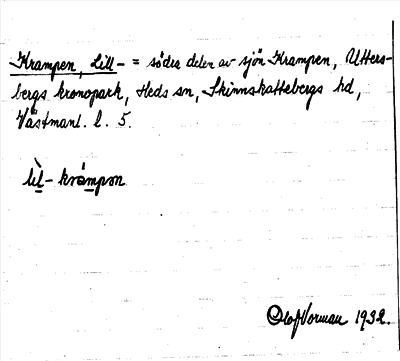 Krampen, Lill- = södra delen av sjön Krampen, Utters-
bergs kronopark, Heds sn, Skinnskattebergs hd,
Västmanl. l. 5.
lìl- krámpən
Olof Norman 1932.